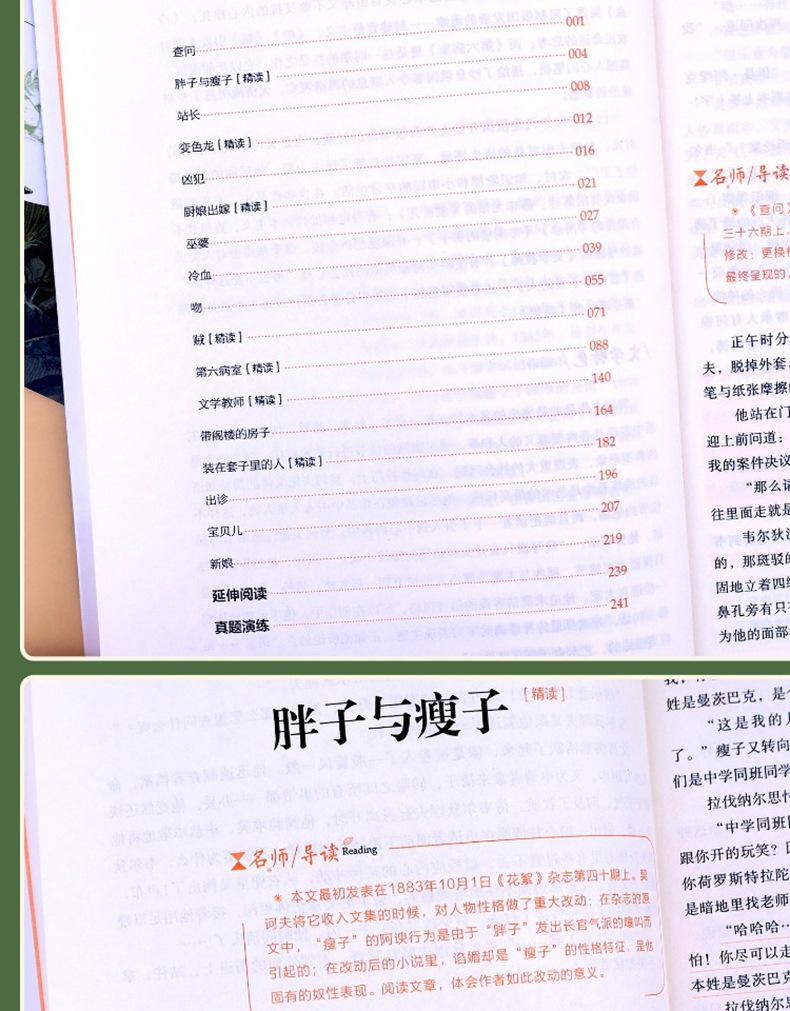 查问 001
胖子与瘦子 [精读] 004
站长 008
变色龙 [精读] 012
凶犯 016
厨娘出嫁 [精读] 021
巫婆 027
冷血 039
吻 055
贼 [精读] 071
第六病室 [精读] 088
文学教师 [精读] 140
带阁楼的房子 164
装在套子里的人 [精读] 182
出诊 196
宝贝儿 207
新娘 219
延伸阅读 239
真题演练 241
名师/导读
《查问》
三十六期上,
修改:更换
最终呈现的
正午时分
夫,脱掉外套,
笔与纸张摩擦
他站在门
迎上前问道:
我的案件决议
“那么请
往里面走就是
韦尔狄
的,那斑驳的
固地立着四
鼻孔旁有只
为他的面部
胖子与瘦子 [精读]
名师/导读 Reading
本文最初发表在1883年10月1日《花絮》杂志第四十期上。契
诃夫将它收入文集的时候,对人物性格做了重大改动:在杂志的原
文中,“瘦子”的阿谀行为是由于“胖子”发出长官气派的嘲叫而
引起的;在改动后的小说里,谄媚却是“瘦子”的性格特征,是他
固有的奴性表现。阅读文章,体会作者如此改动的意义。
姓是曼茨巴克,是
“这是我的儿
了。”瘦子又转向
们是中学同班同学
拉伐纳尔思忖
“中学同班
跟你开的玩笑?
你荷罗斯特拉陀
是暗地里找老师
“哈哈哈…
怕!你尽可以走
本姓是曼茨巴克
拉伐纳尔